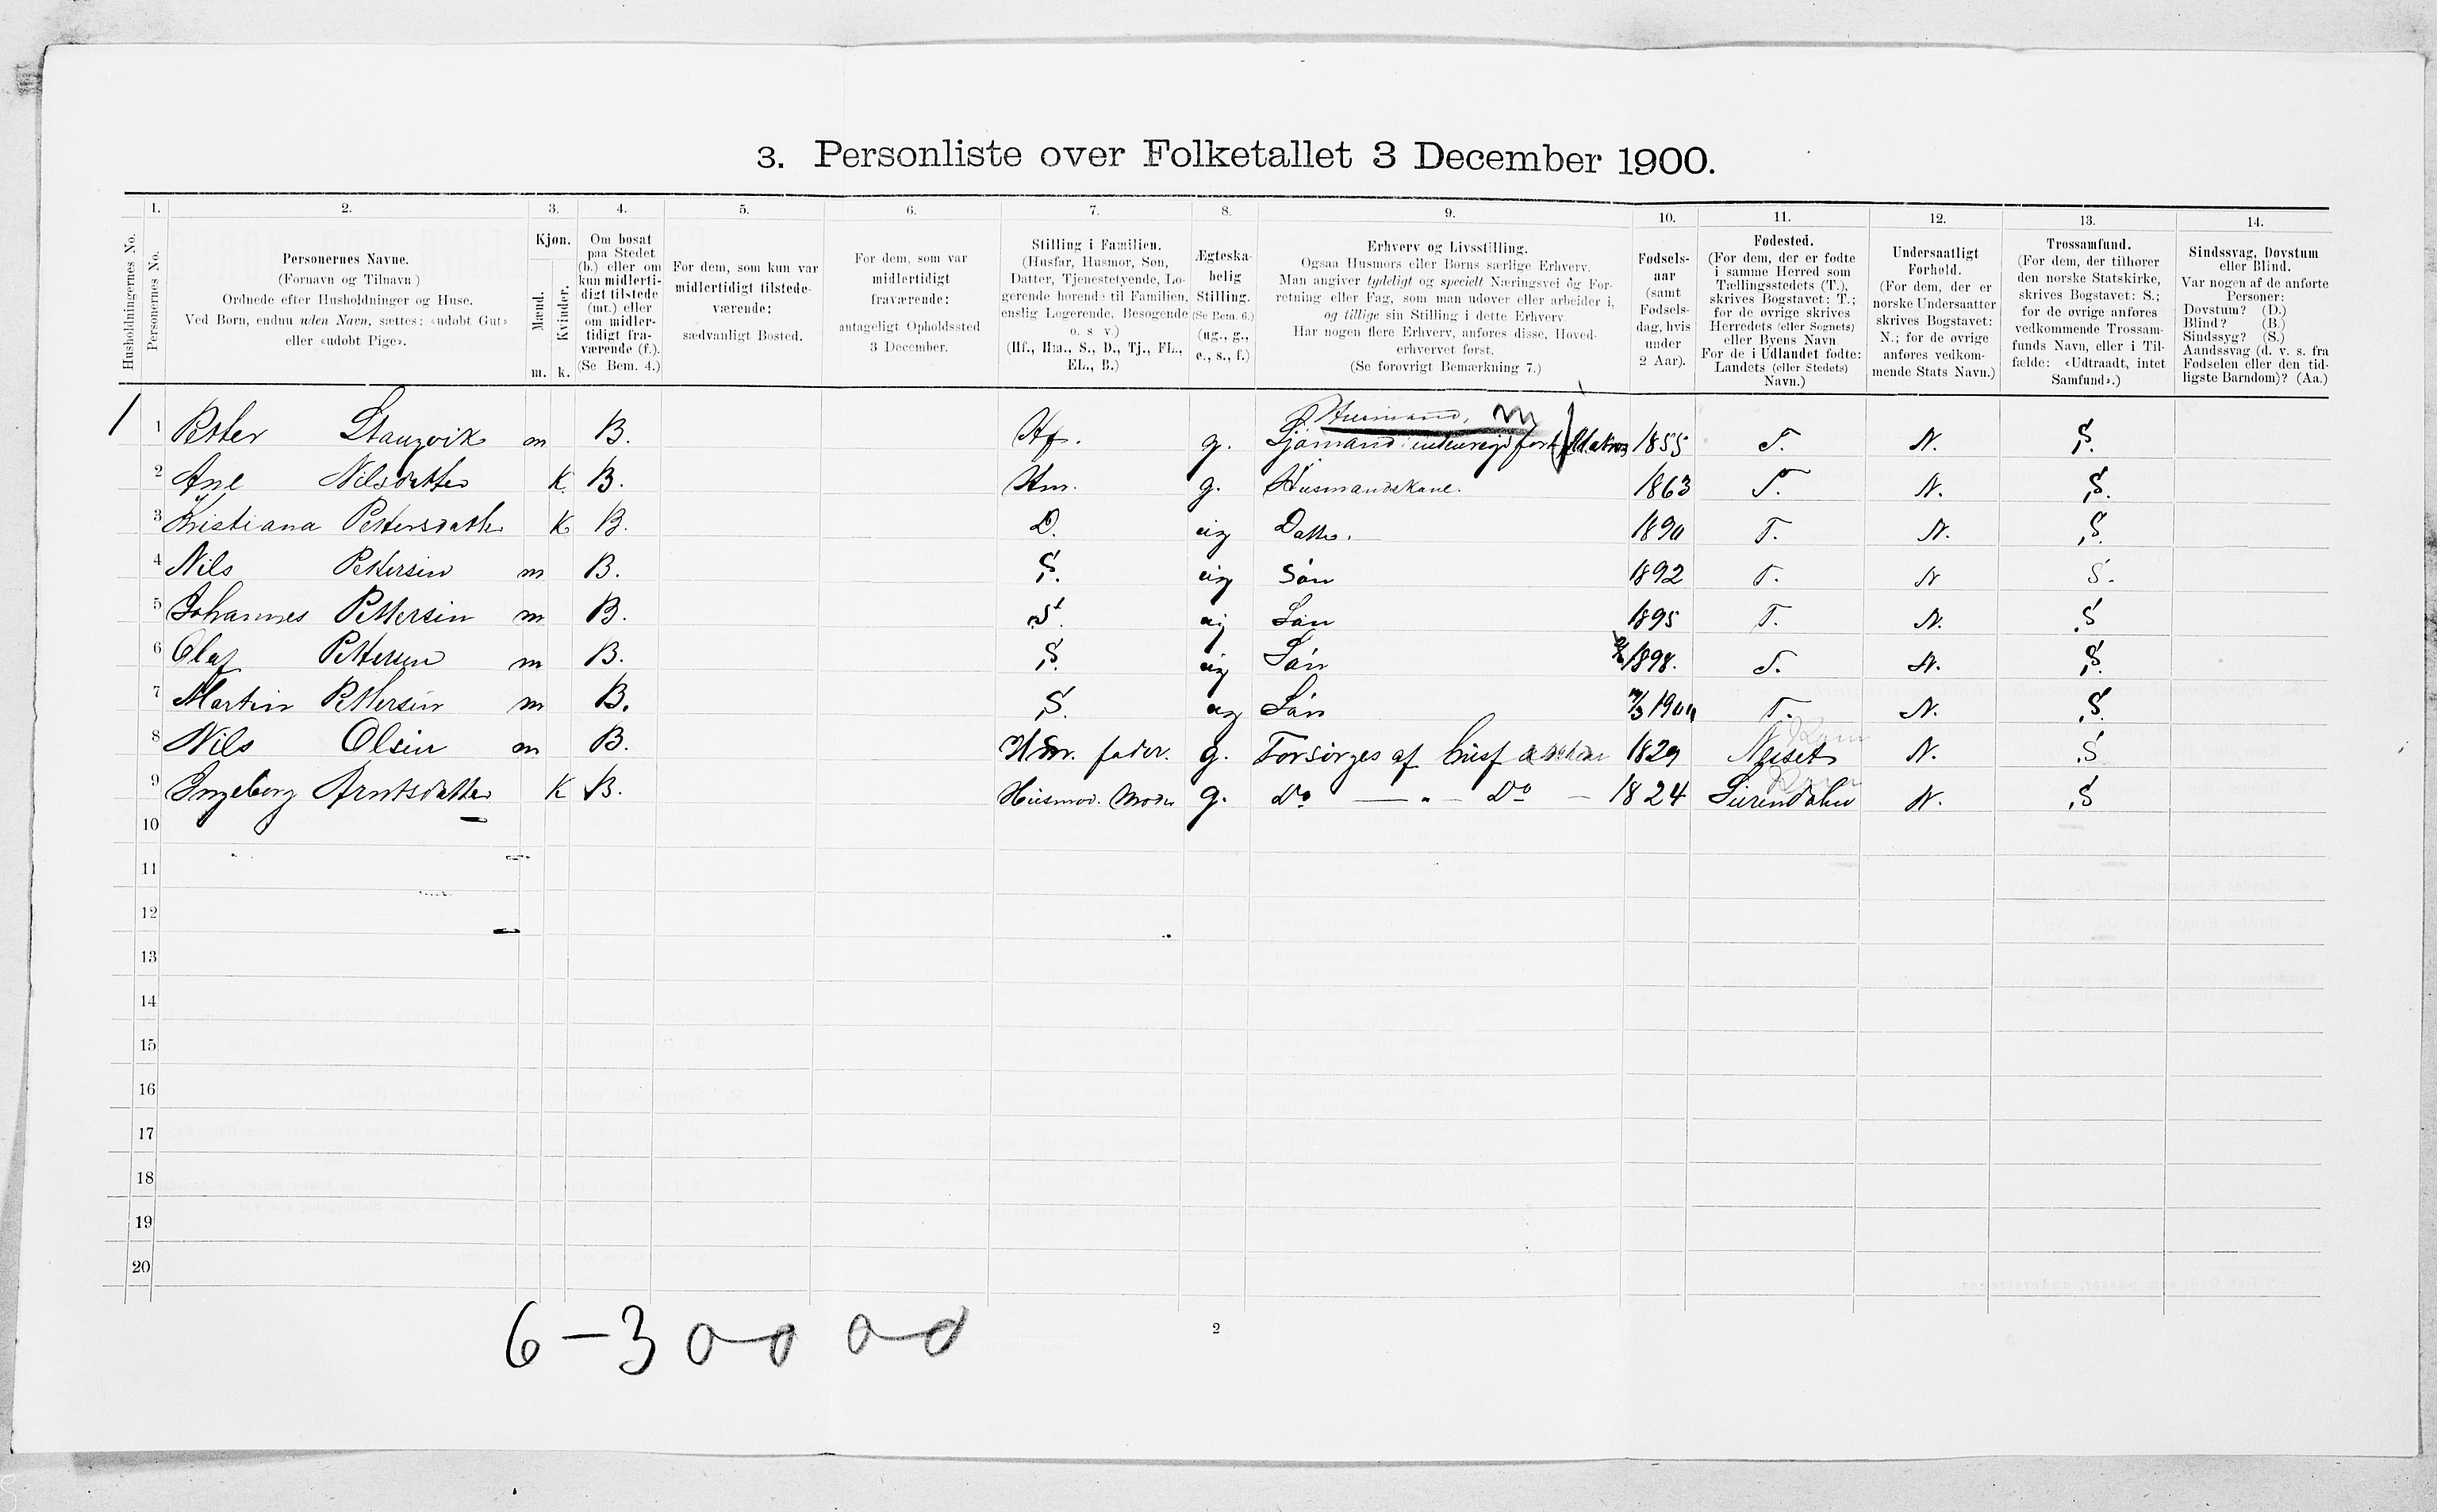 3. Personliste over Folketallet 3 December 1900.
Husholdningernes No.
1.
Personernes No.
2.
Personernes Navne.
(Fornavn og Tilnavn)
Ordnede efter Husholdninger og Huse.
Ved Børn, endnu uden Navn, sættes: «udøbt Gut»
eller «udøbt Pige».
3.
Kjøn.
Mænd.
Kvinder.
m. k.
4.
Om bosat
paa Stedet
(b.) eller om
kun midlerti-
digt tilstede
(mt.) eller
om midler-
tidigt fra-
værende (f.).
(Se Bem. 4.)
5.
For dem, som kun var
midlertidigt tilstede-
værende:
sædvanligt Bosted.
6.
For dem, som var
midlertidigt
fraværende:
antageligt Opholdssted
3 December.
7.
Stilling i Familien.
(Husfar, Husmor, Søn,
Datter, Tjenestetyende, Lo-
gerende hørende til Familien,
enslig Logerende, Besøgende
o. s. v.)
(Hf., Hm., S., D., Tj., FL.,
EL., B.)
8.
Ægteska-
belig
Stilling.
(Se Bem. 6.)
(ug., g.,
e., s., f.)
9.
Erhverv og Livsstilling.
Ogsaa Husmors eller Børns særlige Erhverv.
Man angiver tydeligt og specielt Næringsvei og For-
retning eller Fag, som man udøver eller arbeider i,
og tillige sin Stilling i dette Erhverv.
Har nogen flere Erhverv, anføres disse, Hoved-
erhvervet først.
(Se forøvrigt Bemærkning 7.)
10.
Fødsels-
aar
(samt
Fødsels-
dag, hvis
under
2 Aar).
11.
Fødested.
(For dem, der er fødte
i samme Herred som
Tællingsstedets (T.),
skrives Bogstavet: T.;
for de øvrige skrives
Herredets (eller Sognets)
eller Byens Navn.
For de i Udlandet fødte:
Landets (eller Stedets)
Navn.)
12.
Undersaatligt
Forhold.
(For dem, der er
norske Undersaatter
skrives Bogstavet:
N.; for de øvrige
anføres vedkom-
mende Stats Navn.)
13.
Trossamfund.
(For dem, der tilhører
den norske Statskirke,
skrives Bogstavet: S.;
for de øvrige anføres
vedkommende Trossam-
funds Navn, eller i Til-
fælde: «Udtraadt, intet
Samfund».)
14.
Sindssvag, Døvstum
eller Blind.
Var nogen af de anførte
Personer:
Døvstum? (D.)
Blind? (B.)
Sindssyg? (S.)
Aandssvag (d. v. s. fra
Fødselen eller den tid-
ligste Barndom)? (Aa.)
Husmand,
1 1 Petter Stangvik m B. Hf. g. Sjømand 1855 T. N. S.
2 Ane Nilsdatter K. B. Hm. g. Husmandskone. 1863 T. N. S.
3 Kristiana Pettersdatter K B. D. ug Datter. 1890 T. N. S.
4 Nils Pettersen m B. S. ug Søn 1892 T. N S.
5 Johannes Pettersen m B. S. ug Søn 1895 T. N. S
6 Olaf Pettersen m B. S. ug Søn 1898. T. N. S.
7 Martin Pettersen m B. S. ug Søn 1900 T. N. S.
8 Nils Olsen m B. Hm. fader. g. Forsørges af husf 1829 Neset N. S
9 Ingeborg Arntsdatter K B. Husmod. Moder g. Do — " — Do — 1824 Surendalen N. S
10
11
12
13
14
15
16
17
18
19
20
6-3 0-0 0-0
2